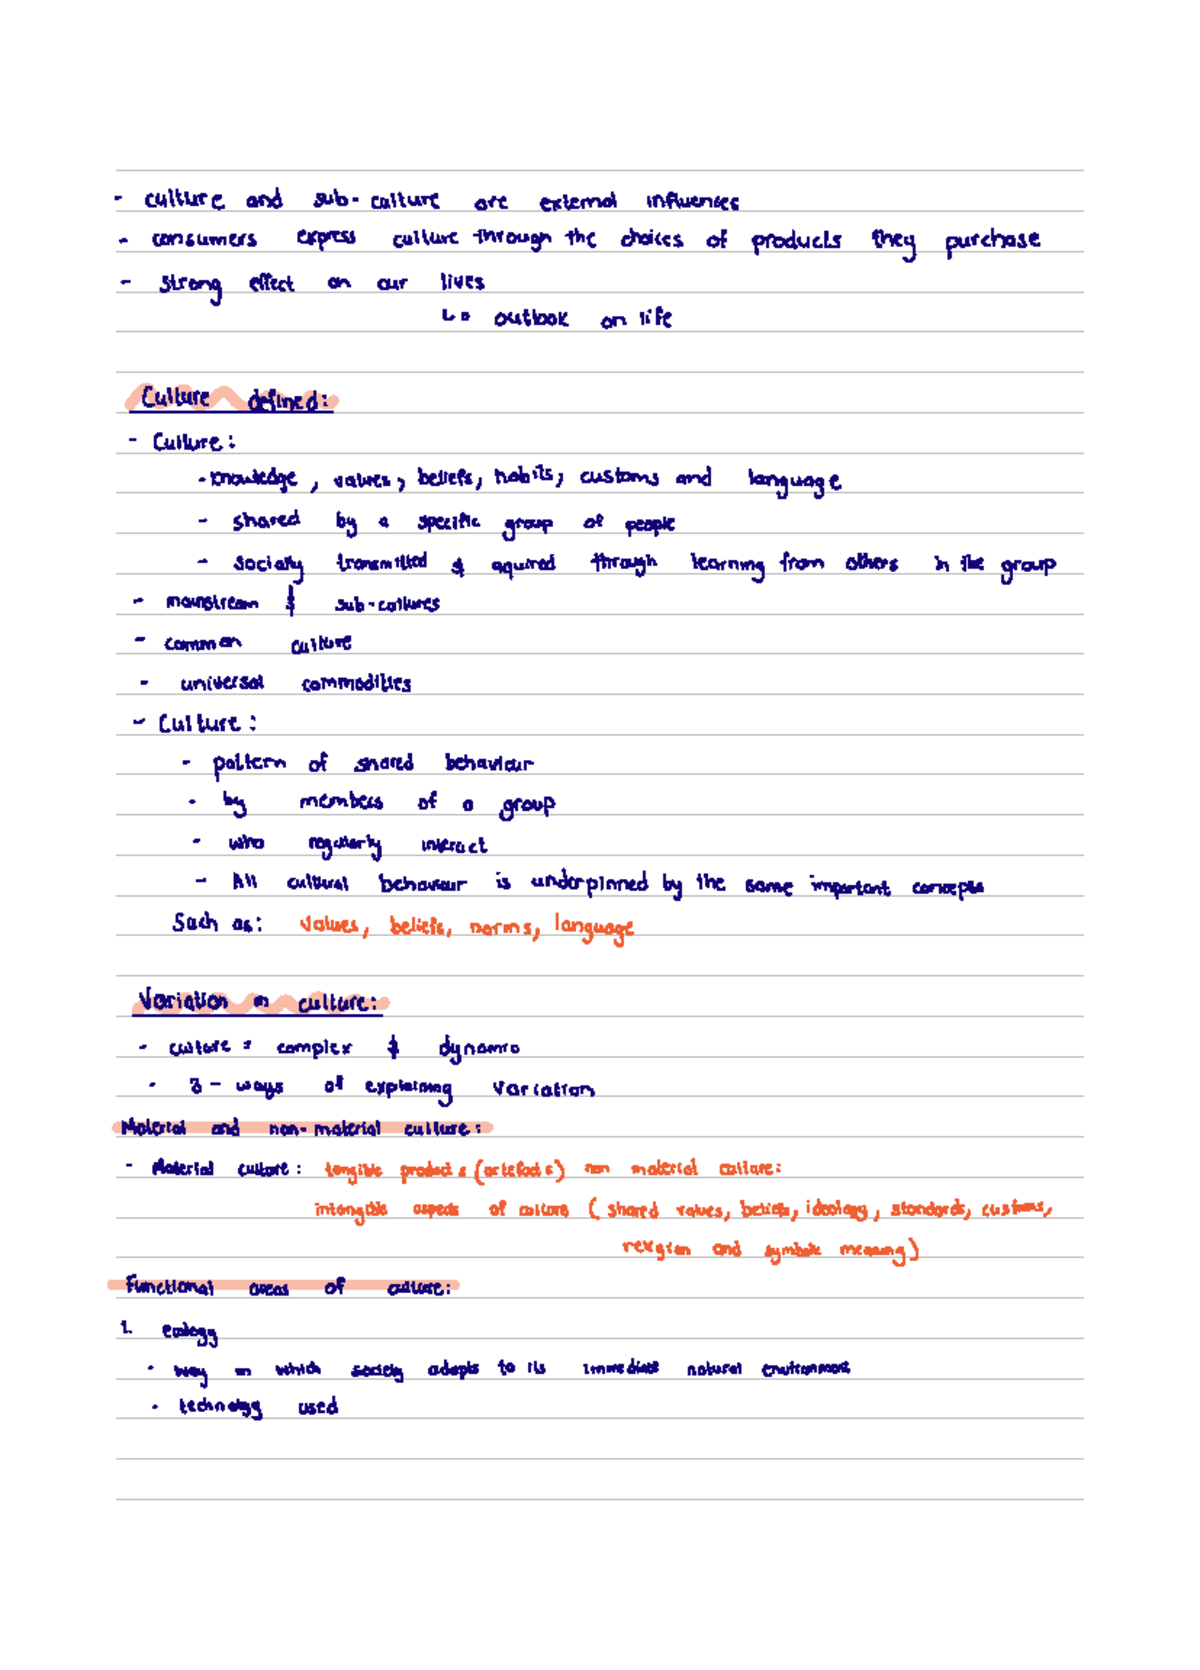 - culture and sub-culture are external influences
- consumers express culture through the choices of products they purchase
- strong effect on our lives
↳ outlook on life
Culture defined:
- Culture:
- knowledge, values, beliefs, habits, customs and language
- shared by a specific group of people
- socially transmitted & aquired through learning from others in the group
- mainstream & sub-cultures
- common culture
- universal commodities
- Culture:
- pattern of shared behaviour
- by members of a group
- who regularly interact
- All cultural behaviour is underpinned by the same important concepts
Such as: values, beliefs, norms, language
Variation in culture:
- culture = complex & dynamic
- 3- ways of explaining variation
Material and non-material culture:
- Material culture: tangible products (artefacts) non material culture:
intangible aspects of culture (shared values, beliefs, ideology, standards, customs,
religion and symbolic meaning)
Functional areas of culture:
1. ecology
- way in which society adapts to its immediate natural environment
- technology used